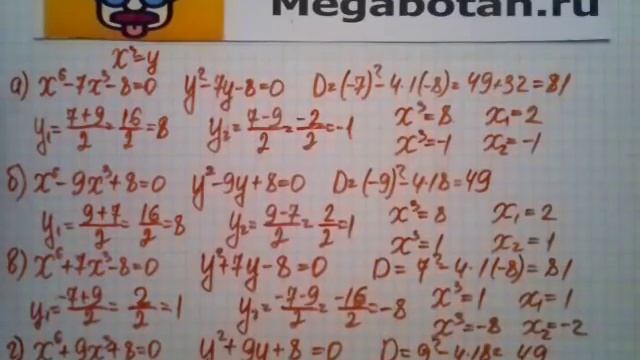 Megabotan.ru
x³=y
а) x⁶-7x³-8=0 y²-7y-8=0 D=(-7)²-4·1(-8)=49+32=81
y₁=7+9/2=16/2=8 y₂=7-9/2=-2/2=-1 x³=8 x₁=2
x³=-1 x₂=-1
б) x⁶-9x³+8=0 y²-9y+8=0 D=(-9)²-4·1·8=49
y₁=9+7/2=16/2=8 y₂=9-7/2=2/2=1 x³=8 x₁=2
x³=1 x₂=1
в) x⁶+7x³-8=0 y²+7y-8=0 D=7²-4·1(-8)=81
y₁=-7+9/2=2/2=1 y₂=-7-9/2=-16/2=-8 x³=1 x₁=1
x³=-8 x₂=-2
г) x⁶+9x³+8=0 y²+9y+8=0 D=9²-4·1·8=49